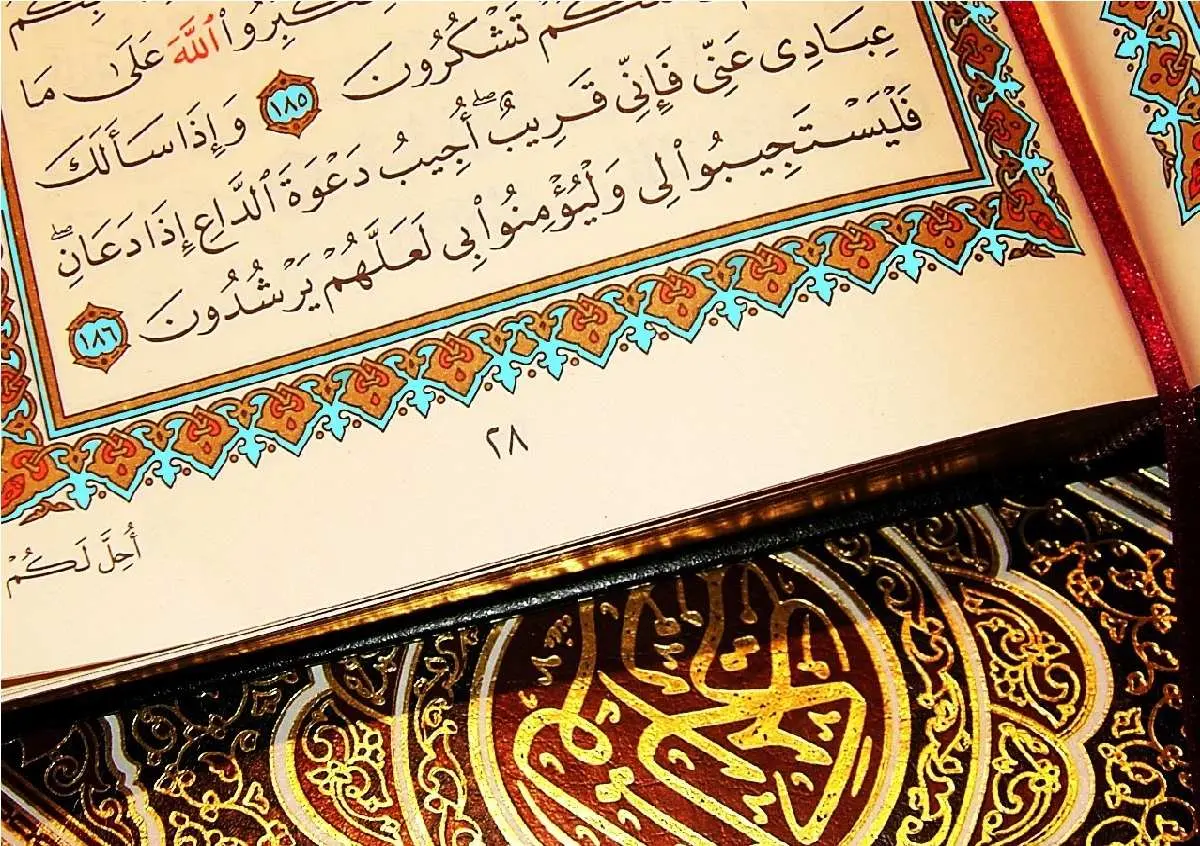 وَلِتُكَبِّرُوا۟ ٱللَّهَ عَلَىٰ مَا
تَشْكُرُونَ ١٨٥ وَإِذَا سَأَلَكَ
عِبَادِى عَنِّى فَإِنِّى قَرِيبٌ ۖ أُجِيبُ دَعْوَةَ ٱلدَّاعِ إِذَا دَعَانِ ۖ
فَلْيَسْتَجِيبُوا۟ لِى وَلْيُؤْمِنُوا۟ بِى لَعَلَّهُمْ يَرْشُدُونَ ١٨٦
٢٨
أُحِلَّ لَكُمْ